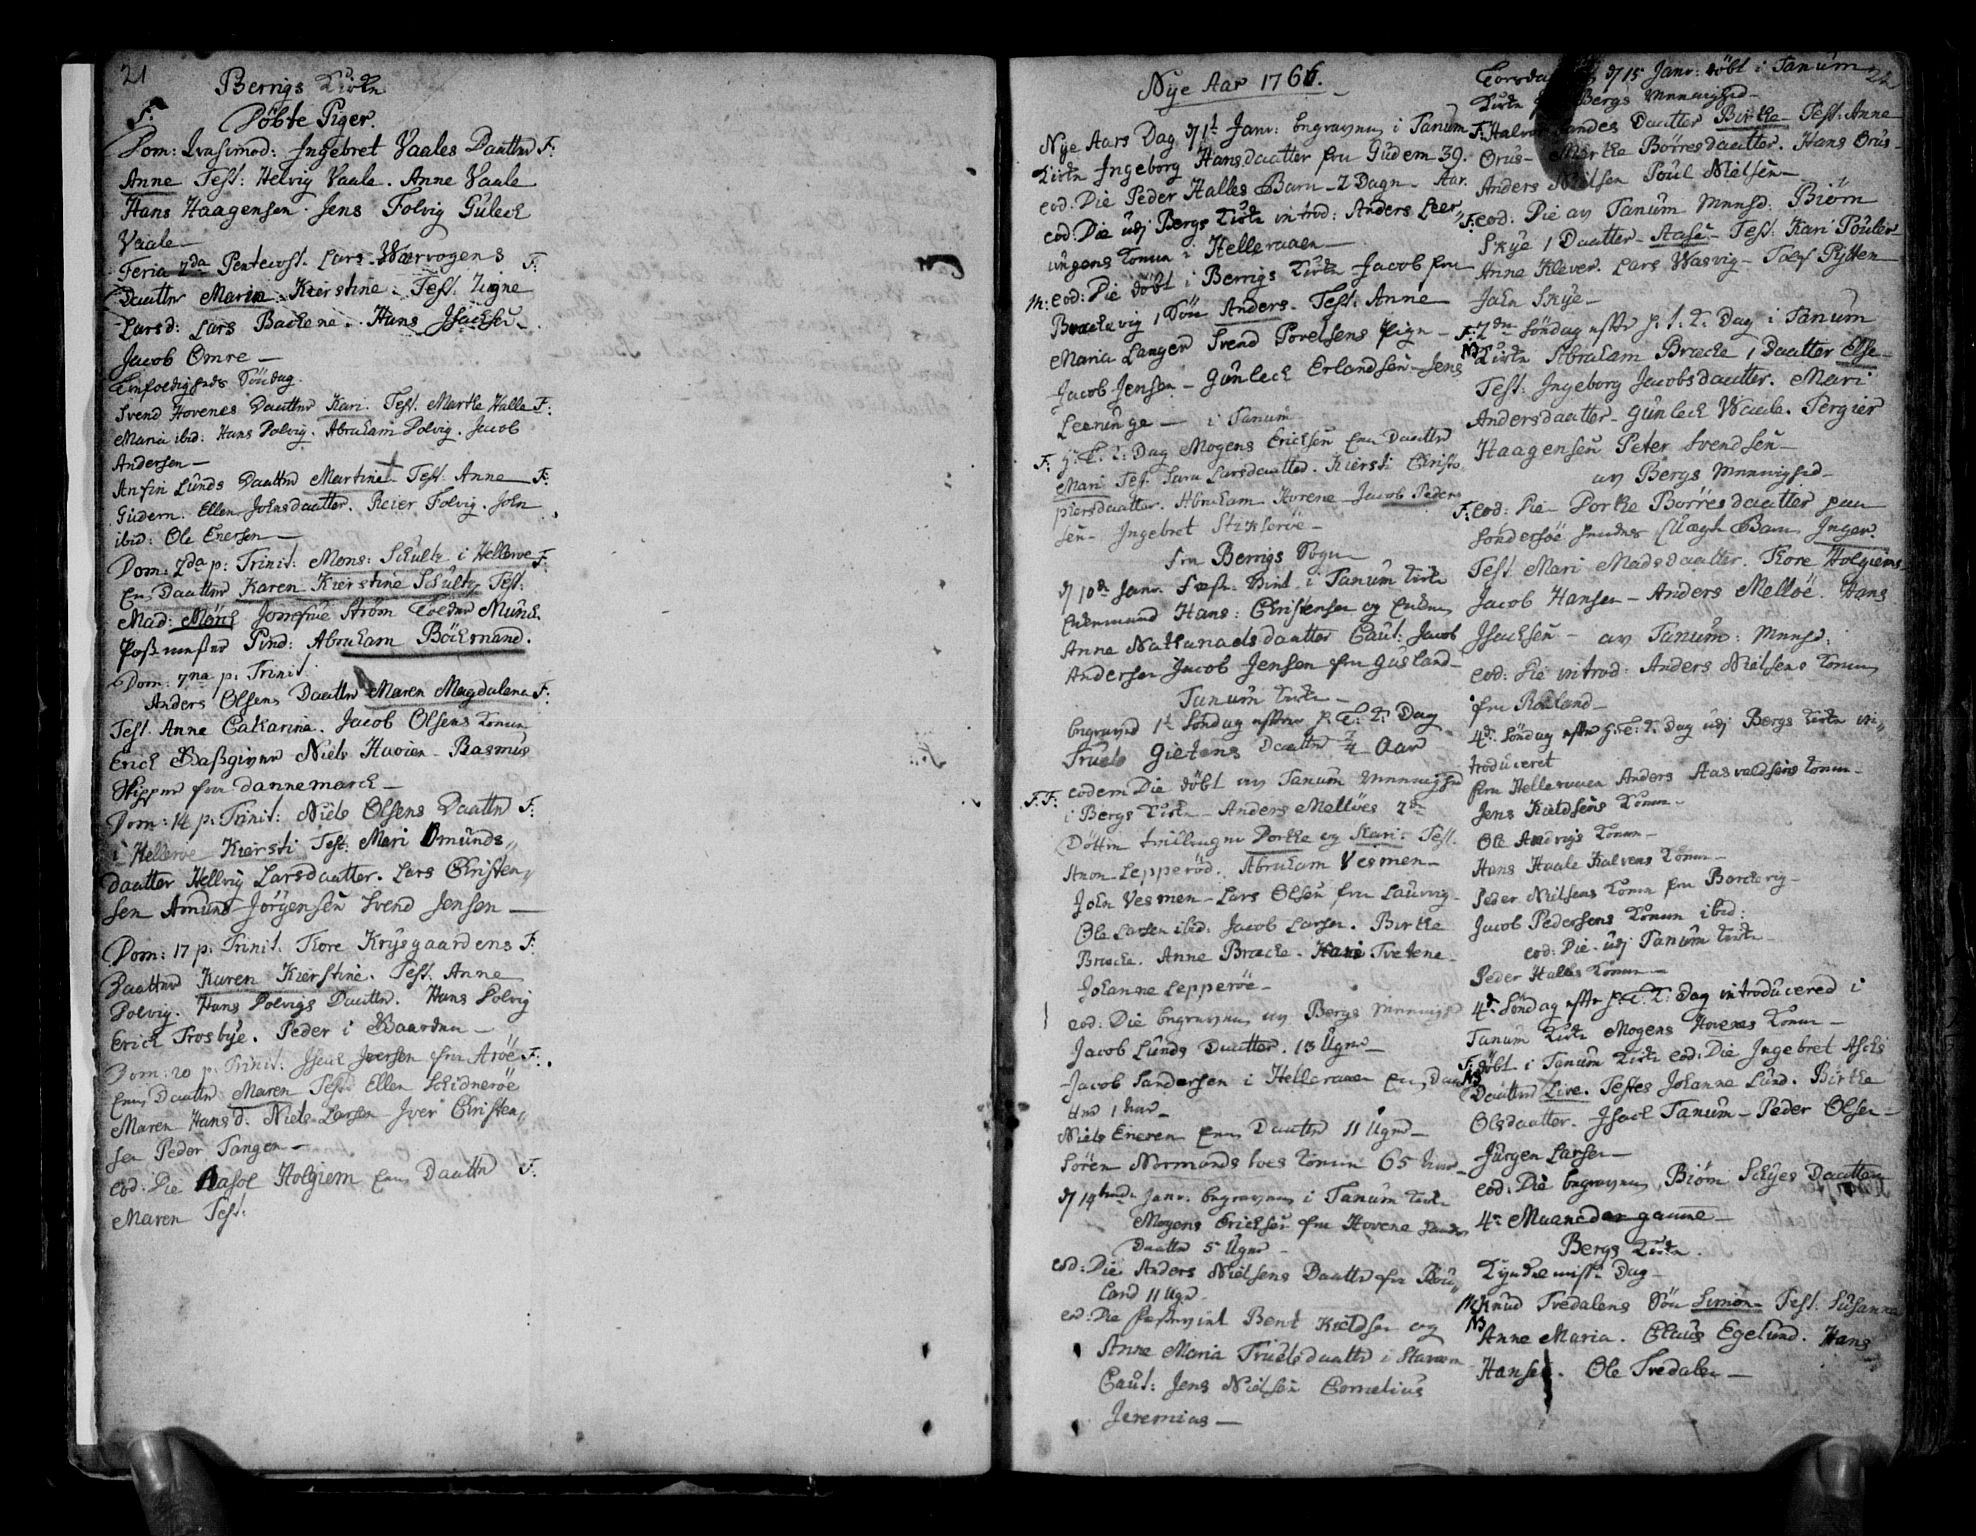 21
Berrigs Kirke
Döbte Piger.
F:
Dom: Qvasimod: Ingebret Vaales Daatter F:
Anne Test: Helvig Vaale. Anne Vaale
Hans Haagensen. Jens Folvig Guleck
Vaale
Feria 2da Pentecost. Lars Værvogens F:
Daatter Maria Kierstine. Test. Zigne
Larsd: Lars Backene. Hans Isachsen
Jacob Omre
Trefoldigheds Söndag.
Svend Hovenes Daatter Kari. Test. Marthe Halle F:
Maria ibid: Hans Polvig. Abraham Polvig. Jacob
Andersen
Anfin Lunds Daatter Martine Test. Anne F:
Gudem. Ellen Johnsdaatter. Reier Folvig. John
ibid: Ole Enersen
Dom: 2da p: Trinit: Mons: Schultz i Hellerøe F:
Daatter Karen Kierstine Schultz Test:
Mad: Mörch Jomfrue Ström Tolder Munch
Postmester Pind: Abraham Böckmand.
Dom: 7na p: Trinit:
Anders Olsens Daatter Maren Magdalena F:
Test. Anne Catharina. Jacob Olsens Konne
Erick Niels Havien. Rasmus
Skipper fra Dannemarck
Dom: 14 p: Trinit: Niels Olsens Daatter F:
i Helleröe Kiersti Test. Mari Omunds
daatter Hellvig Larsdaatter. Lars Christen
sen Amund Jörgensen Svend Jensen
Dom: 17 p: Trinit: Tore Krysgaardens F:
Daatter Karen Kierstine. Test. Anne
Polvig. Hans Polvigs Daatter. Hans Polvig
Erick Frosbye. Peder i
Dom: 20 p: Trinit: Isach Iversen fra Aröe F:
Daatter Maren Test Ellen Schidneröe
Maren Hansd: Niels Larsen Iver Christen
sen Peder Tangen
eod: Die Aasoe Holgiem Daatter F:
Maren Test:
Nye Aar 1766.
Nye Aars Dag d 1t Janr: begraven i Tanum
Kirke Ingeborg Hansdaatter fra Gudem 39.
eod: Die Peder Halles Barn 2 Dage. Aar.
eod: Die udj Bergs Kirke introd: Anders Leer
ungens Konne i Helleraaen
M: eod: Die döbt i Berrigs Kirke Jacob fra
Brackevig 1 Sön Anders. Test. Anne
Maria Langer Svend Povelsens Pige
Jacob Jensen. Gunleck Erlandsen Jens
Leerunge i Tanum
F: H. T: K: Dag Mogens Ericksen Daatter
Mari Test. Sara Larsdaatter. Kiersti Christo
phersdaatter. Abraham Hovene Jacob Peder
sen Ingebret Stikleröe
fra Berrigs Sogn
d 10de Janr. Fæst: i Tanum Kirke
Enkemand Hans: Christensen og
Anne Nathanaelsdaatter Caut: Jacob
Andersen Jacob Jensen fra Gusland
Tanum Kirke
begravet 1t Söndag efter H: T: K: Dag
Truels Gietens Daatter Aar
F: F: eodem Die döbt av Tanum Meenighed
i Bergs Kirke Anders Mellöes 2de
Döttre tvillinger Dorthe og Kari. Test.
Anon Lepperöd. Abraham Vesmen
John Vesmen Lars Olsen fra Laurvig
Ole Larsen ibid: Jacob Larsen. Birthe
Bræcke. Anne Bræcke. Hans Tvetene
Johanne Lepperöe
eod: Die begraven av Bergs Meenighed
Jacob Lunds Daatter. 13 Uger
Jacob Sandersen i Helleraaen Daat
ter 1 Aar
Niels Eneren Daatter 11 Uger
Sören Normands Konne 65 Aar
d 14de Janr. begraven i Tanum Kirke
Mogens Ericksen fra Hovene
Daatter 5 Uger
eod: Die Anders Nielsens Daatter fra
land 11 Uger
eod: Die Bent Kieldsen og
Anne Maria Truelsdaatter i Stavern
Caut: Jens Nielsen Cornelius
Jeremias
22
Torsdag d 15 Janr: döbt i Tanum
Kirke Bergs Meenighed
F: Halvor Sandes Daatter Birthe Test: Anne
Orus Marthe Borresdaatter. Hans Orus
Anders Nielsen Poul Nielsen
F: eod: Die av Tanum Meenhd: Biörn
Skye 1 Daatter Aase Test. Kari
Anne Klever. Lars Wasvig Tolf Pytten
John Skye
F: 2den Söndag efter H. T. K: Dag i Tanum
NB Kirke Abraham Bræcke 1 Daatter Else
Test: Ingeborg Jacobsdaatter. Mari
Andersdaatter Gunleck Waale. Tergier
Haagensen Peter Svendsen
av Bergs Meenighed
F: eod: Die Dorthe Borresdaatter paa
Sondersöe Barn Inger
Test Mari Madsdaatter. Tore Holgiems
Jacob Hansen Anders Mellöe. Hans
Isachsen av Tanum: Meenhd:
eod: Die introd: Anders Nielsens Konne
fra Roeland
4de Söndag efter H: T: K: Dag udj Bergs Kirke in
troduceret
fra Helleraaen Anders Aasvaldsens Konne
Jens Kieldsens Konne
Ole Andvigs Konne
Hans Haale Kalvens Konne
Peder Nielsens Konne fra Barckevig
Jacob Pedersens Konne ibid:
eod: Die udj Tanum Kirke
Peder Halles Konne
4de Söndag efter H: T: K: Dag introduceret i
Tanum Kirke Mogens Hovenes Konne
F: döbt i Tanum Kirke eod: Die Ingebret Askis
NB Daatter Live. Testes Johanne Lund. Birthe
Olsdaatter. Isach Tanum Peder Olsen
Jürgen Larsen
eod: Die begraven Biörn Schyes Daatter
4re Maaneder gamle
Bergs Kirke.
Kyndelmisse Dag
M: Knud Tvedalens Sön Simon Test. Susanna
NB Anne Maria. Claus Egelund. Hans
Hansen. Ole Tvedalen